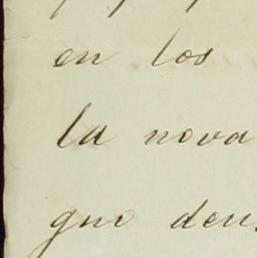 en los
la nova
que deu